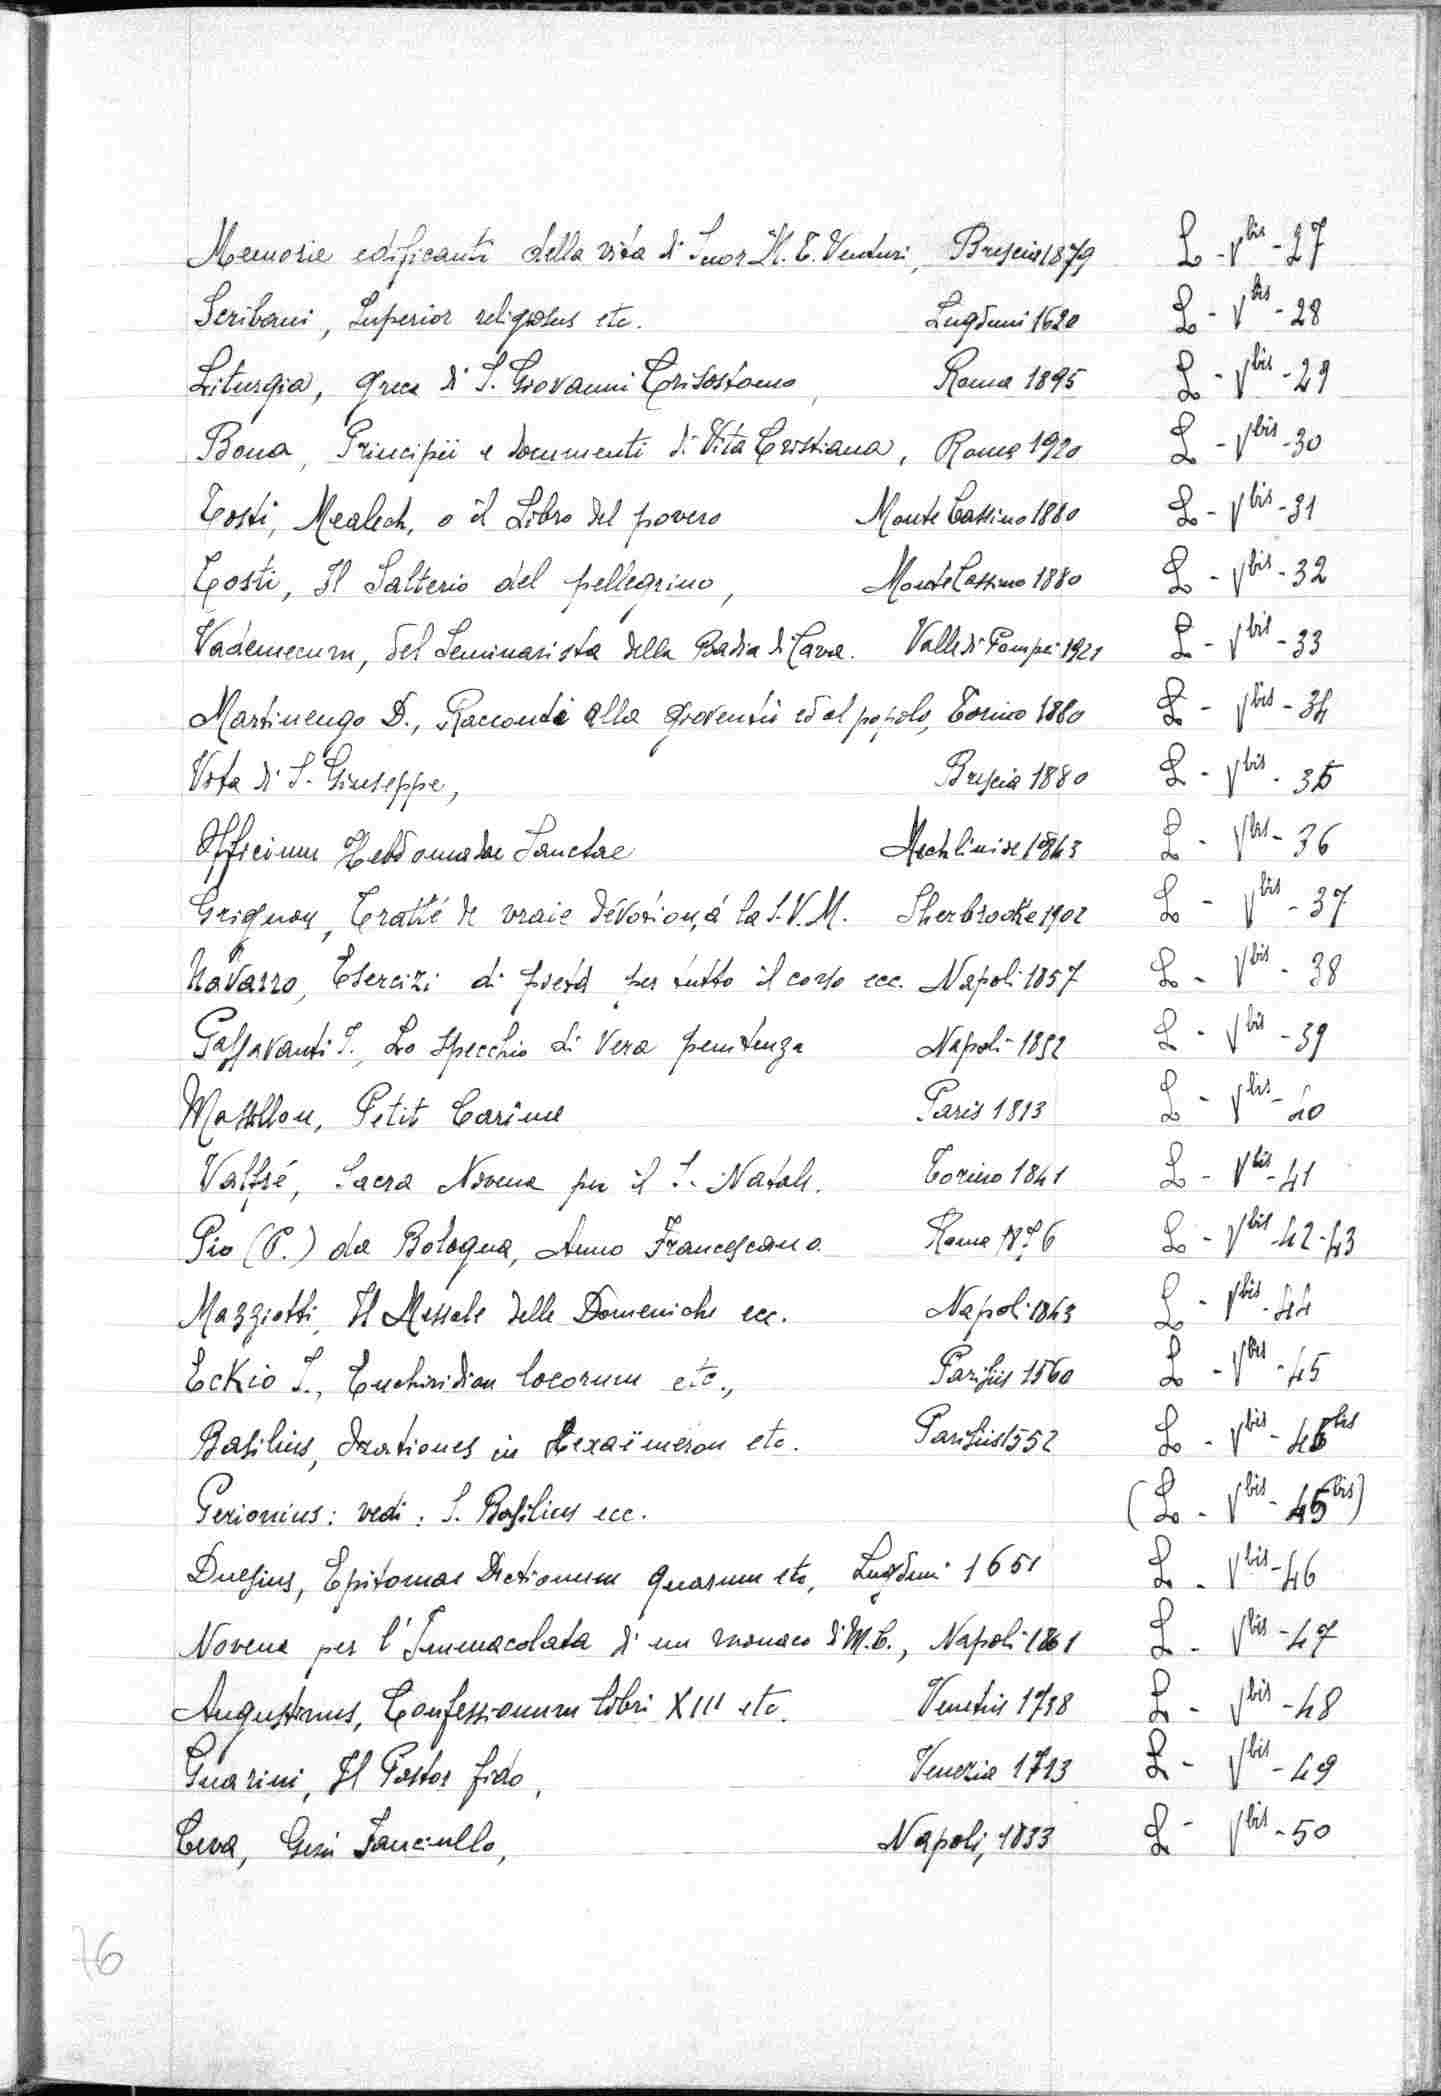 Memorie edificanti della vita di Suor M. E. Venturi, Brescia 1879 L - Vbis - 27
Scribani, Superior religiosus etc. Lugduni 1620 L - Vbis - 28
Liturgia, greca di S. Giovanni Crisostomo, Roma 1895 L - Vbis - 29
Bona, Principii e documenti di Vita Cristiana, Roma 1920 L - Vbis - 30
Tosti, Mealech, o il Libro del povero Monte Cassino 1880 L - Vbis - 31
Tosti, Il Salterio del pellegrino, Monte Cassino 1880 L - Vbis - 32
Vademecum, del Seminarista della Badia di Cava. Valle di Pompei 1921 L - Vbis - 33
Martinengo D., Racconti alla gioventù ed al popolo, Torino 1880 L - Vbis - 34
Vita di S. Giuseppe, Brescia 1880 L - Vbis - 35
Officium Hebdomadae Sanctae Mechliniae L - Vbis - 36
Grignon, Traité de vraie dévotion, à la S.V.M. Sherbrooke 1902 L - Vbis - 37
Navarro, Esercizi di pietà per tutto il corso ecc. Napoli 1857 L - Vbis - 38
Passavanti I., Lo Specchio di Vera penitenza Napoli 1852 L - Vbis - 39
Massillon, Petit Carême Paris 1813 L - Vbis - 40
Valfré, Sacra Novena per il S. Natale. Torino 1841 L - Vbis - 41
Pio (P.) da Bologna, Anno Francescano Roma L - Vbis - 42-43
Mazziotti, Il Messale delle Domeniche ecc. Napoli 1843 L - Vbis - 44
Eckio I., Enchiridion locorum etc., Parisiis 1560 L - Vbis - 45
Basilius, Orationes in Hexaëmeron etc. Parisiis 1552 L - Vbis - 45bis
Perionius: vedi: S. Basilius ecc. (L - Vbis - 45bis)
Duesius, Epitomae Dictionum quarum etc, Lugduni 1651 L - Vbis - 46
Novena per l'Immacolata di un monaco di M.C., Napoli 1861 L - Vbis - 47
Augustinus, Confessionum libri XIII etc. Venetiis L - Vbis - 48
Guarini, Il Pastor fido, Venezia L - Vbis - 49
Ceva, Gesù Fanciullo, Napoli, 1833 L - Vbis - 50
76